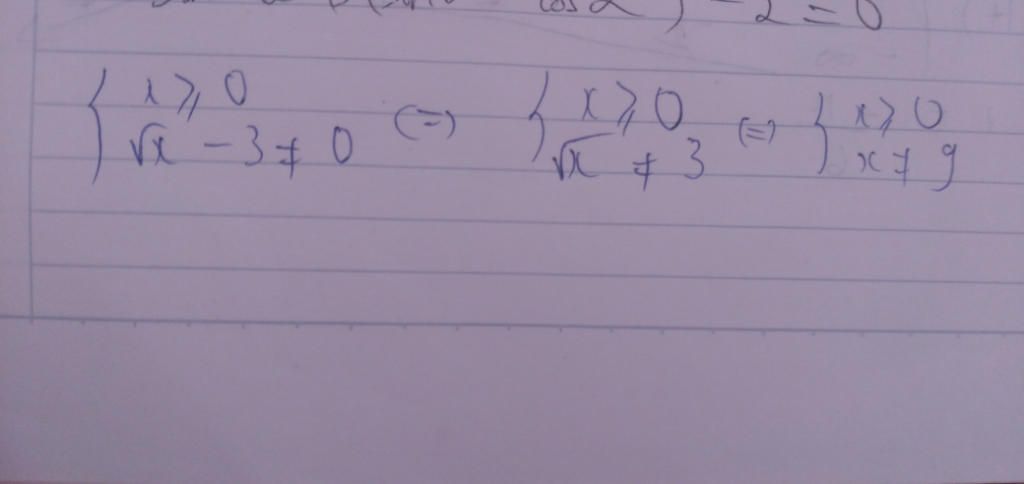 cos α ) - 2 = 0
{ x ⩾ 0 (=) { x ⩾ 0 (=) { x ⩾ 0
√x - 3 ≠ 0 √x ≠ 3 x ≠ 9